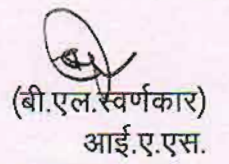 (बी.एल.स्वर्णकार)
आई.ए.एस.